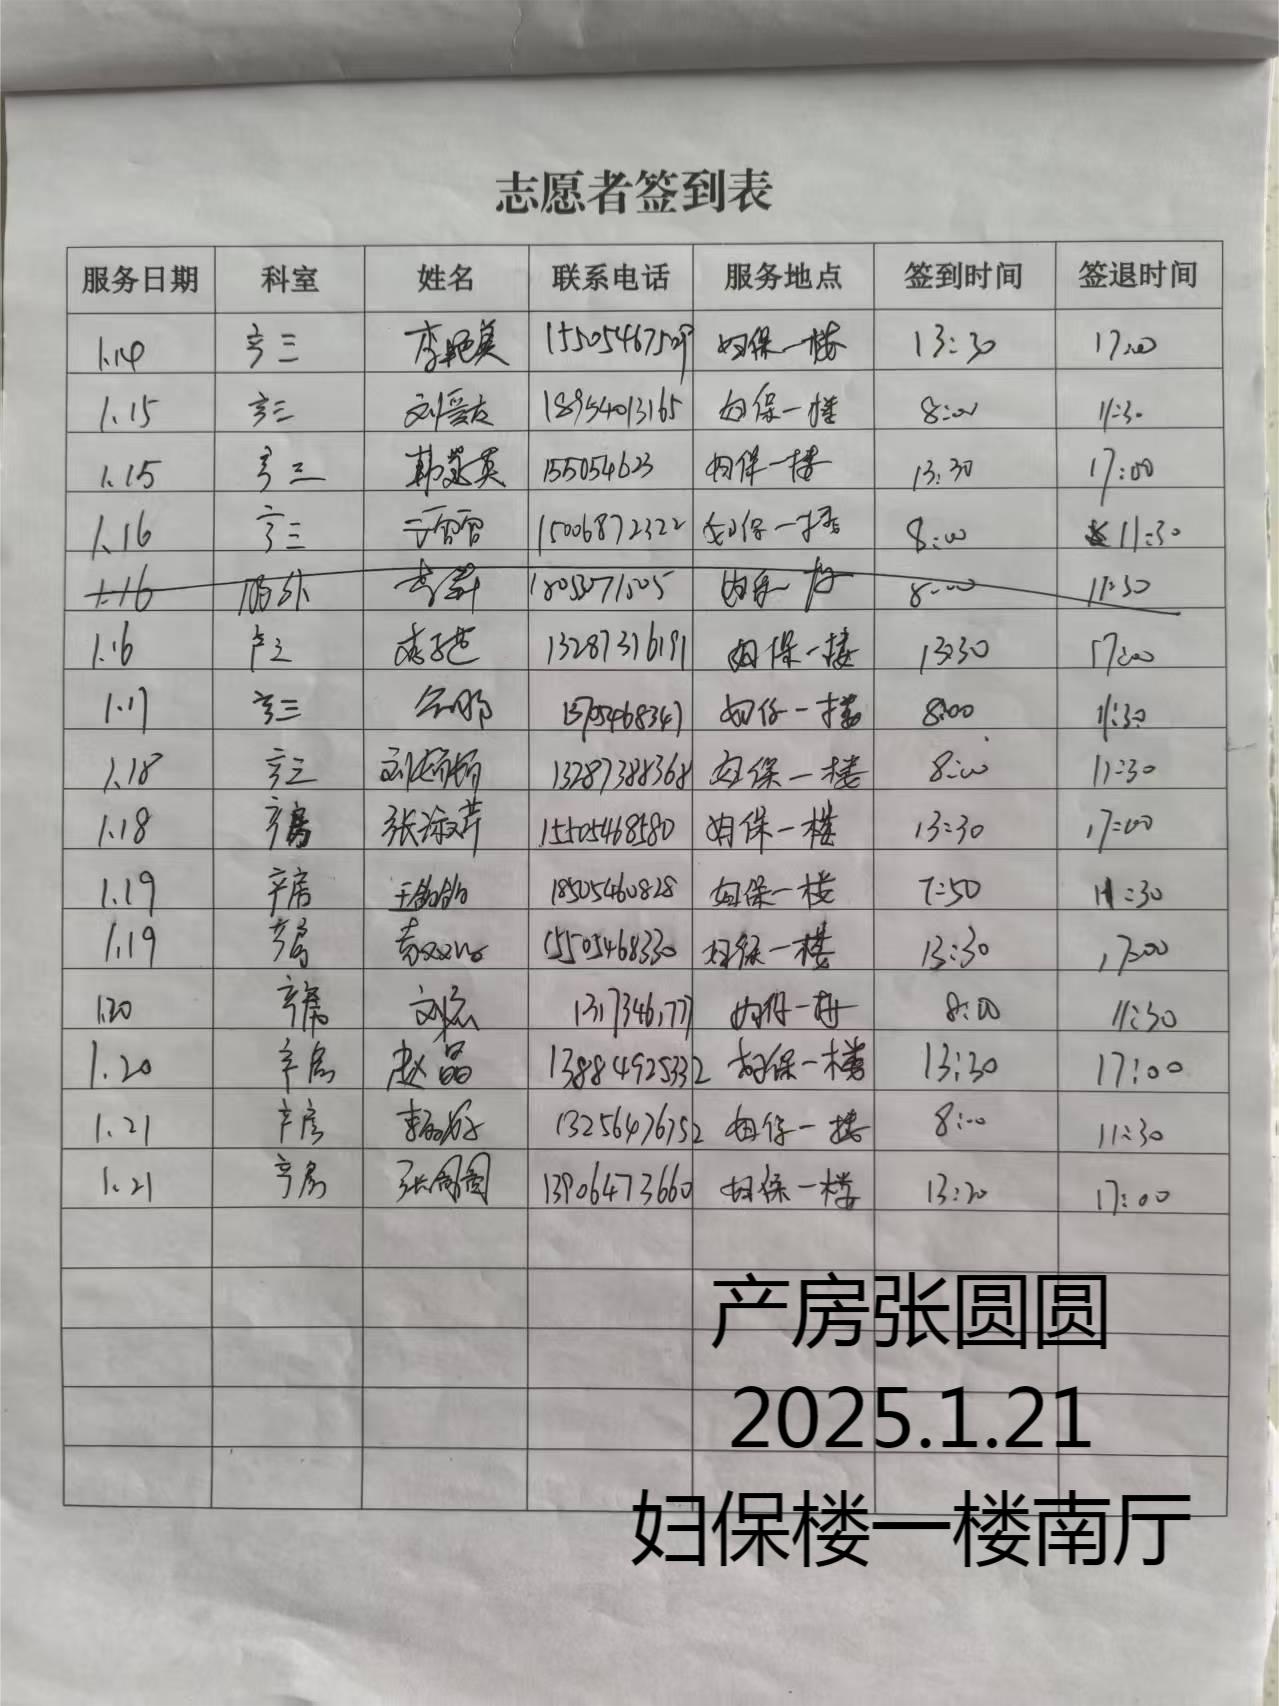 志愿者签到表
服务日期 科室 姓名 联系电话 服务地点 签到时间 签退时间
1.14 产三 李艳美 妇保一楼 13:30 17:00
1.15 产三 刘爱友 18954013165 妇保一楼 8:00 11:30
1.15 产三 韩 英 155054623 妇保一楼 13:30 17:00
1.16 产三 15006872322 妇保一楼 8:00 11:30
1.16 妇保一楼 8:00 11:30
1.16 13287316191 妇保一楼 13:30 17:00
1.17 产三 15705468347 妇保一楼 8:00 11:30
1.18 产三 刘娇娇 13287388368 妇保一楼 8:00 11:30
1.18 产房 张淑芹 15505468580 妇保一楼 13:30 17:00
1.19 产房 18505460828 妇保一楼 7:50 11:30
1.19 产房 15505468330 妇保一楼 13:30 17:00
1.20 产房 妇保一楼 8:00 11:30
1.20 产房 赵晶 13884925332 妇保一楼 13:30 17:00
1.21 产房 13256476752 妇保一楼 8:00 11:30
1.21 产房 张圆圆 13906473660 妇保一楼 13:20 17:00
产房张圆圆
2025.1.21
妇保楼一楼南厅